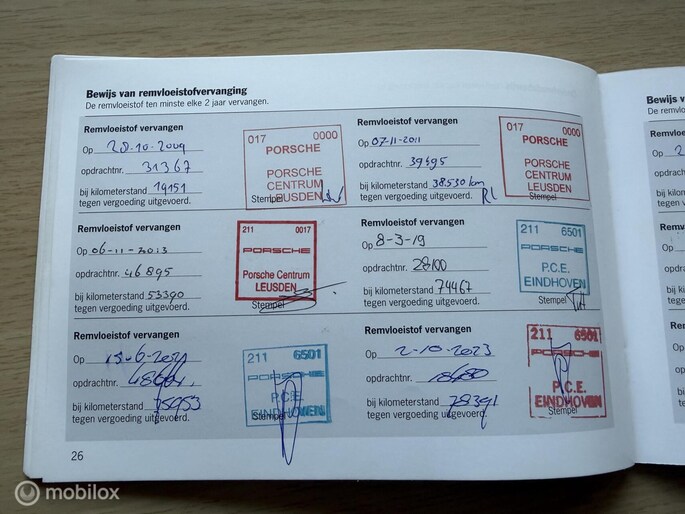 Bewijs van remvloeistofvervanging
De remvloeistof ten minste elke 2 jaar vervangen.
Remvloeistof vervangen
Op 28-10-2009
opdrachtnr. 31367
bij kilometerstand 19151
tegen vergoeding uitgevoerd.
017 0000
PORSCHE
PORSCHE
CENTRUM
LEUSDEN
Stempel
Remvloeistof vervangen
Op 07-11-2011
opdrachtnr. 39495
bij kilometerstand 38.530 km
tegen vergoeding uitgevoerd.
017 0000
PORSCHE
PORSCHE
CENTRUM
LEUSDEN
Stempel
RL
Remvloeistof vervangen
Op 06-11-2013
opdrachtnr. 46895
bij kilometerstand 53390
tegen vergoeding uitgevoerd.
211 0017
PORSCHE
Porsche Centrum
LEUSDEN
Stempel
Remvloeistof vervangen
Op 8-3-19
opdrachtnr. 28100
bij kilometerstand 74467
tegen vergoeding uitgevoerd.
211 6501
PORSCHE
P.C.E.
EINDHOVEN
Stempel
Remvloeistof vervangen
Op
opdrachtnr.
bij kilometerstand 75953
tegen vergoeding uitgevoerd.
211 6501
PORSCHE
P.C.E.
EINDHOVEN
Stempel
Remvloeistof vervangen
Op 2-10-2023
opdrachtnr.
bij kilometerstand 78391
tegen vergoeding uitgevoerd.
211 6501
PORSCHE
P.C.E.
EINDHOVEN
Stempel
26
Bewijs v
De remvloe
Remvloei
Op 2
opdrachtn
bij kilome
tegen ver
Remvl
Op
opdrac
bij kilo
tegen
Remv
Op
opdra
bij ki
tege
mobilox